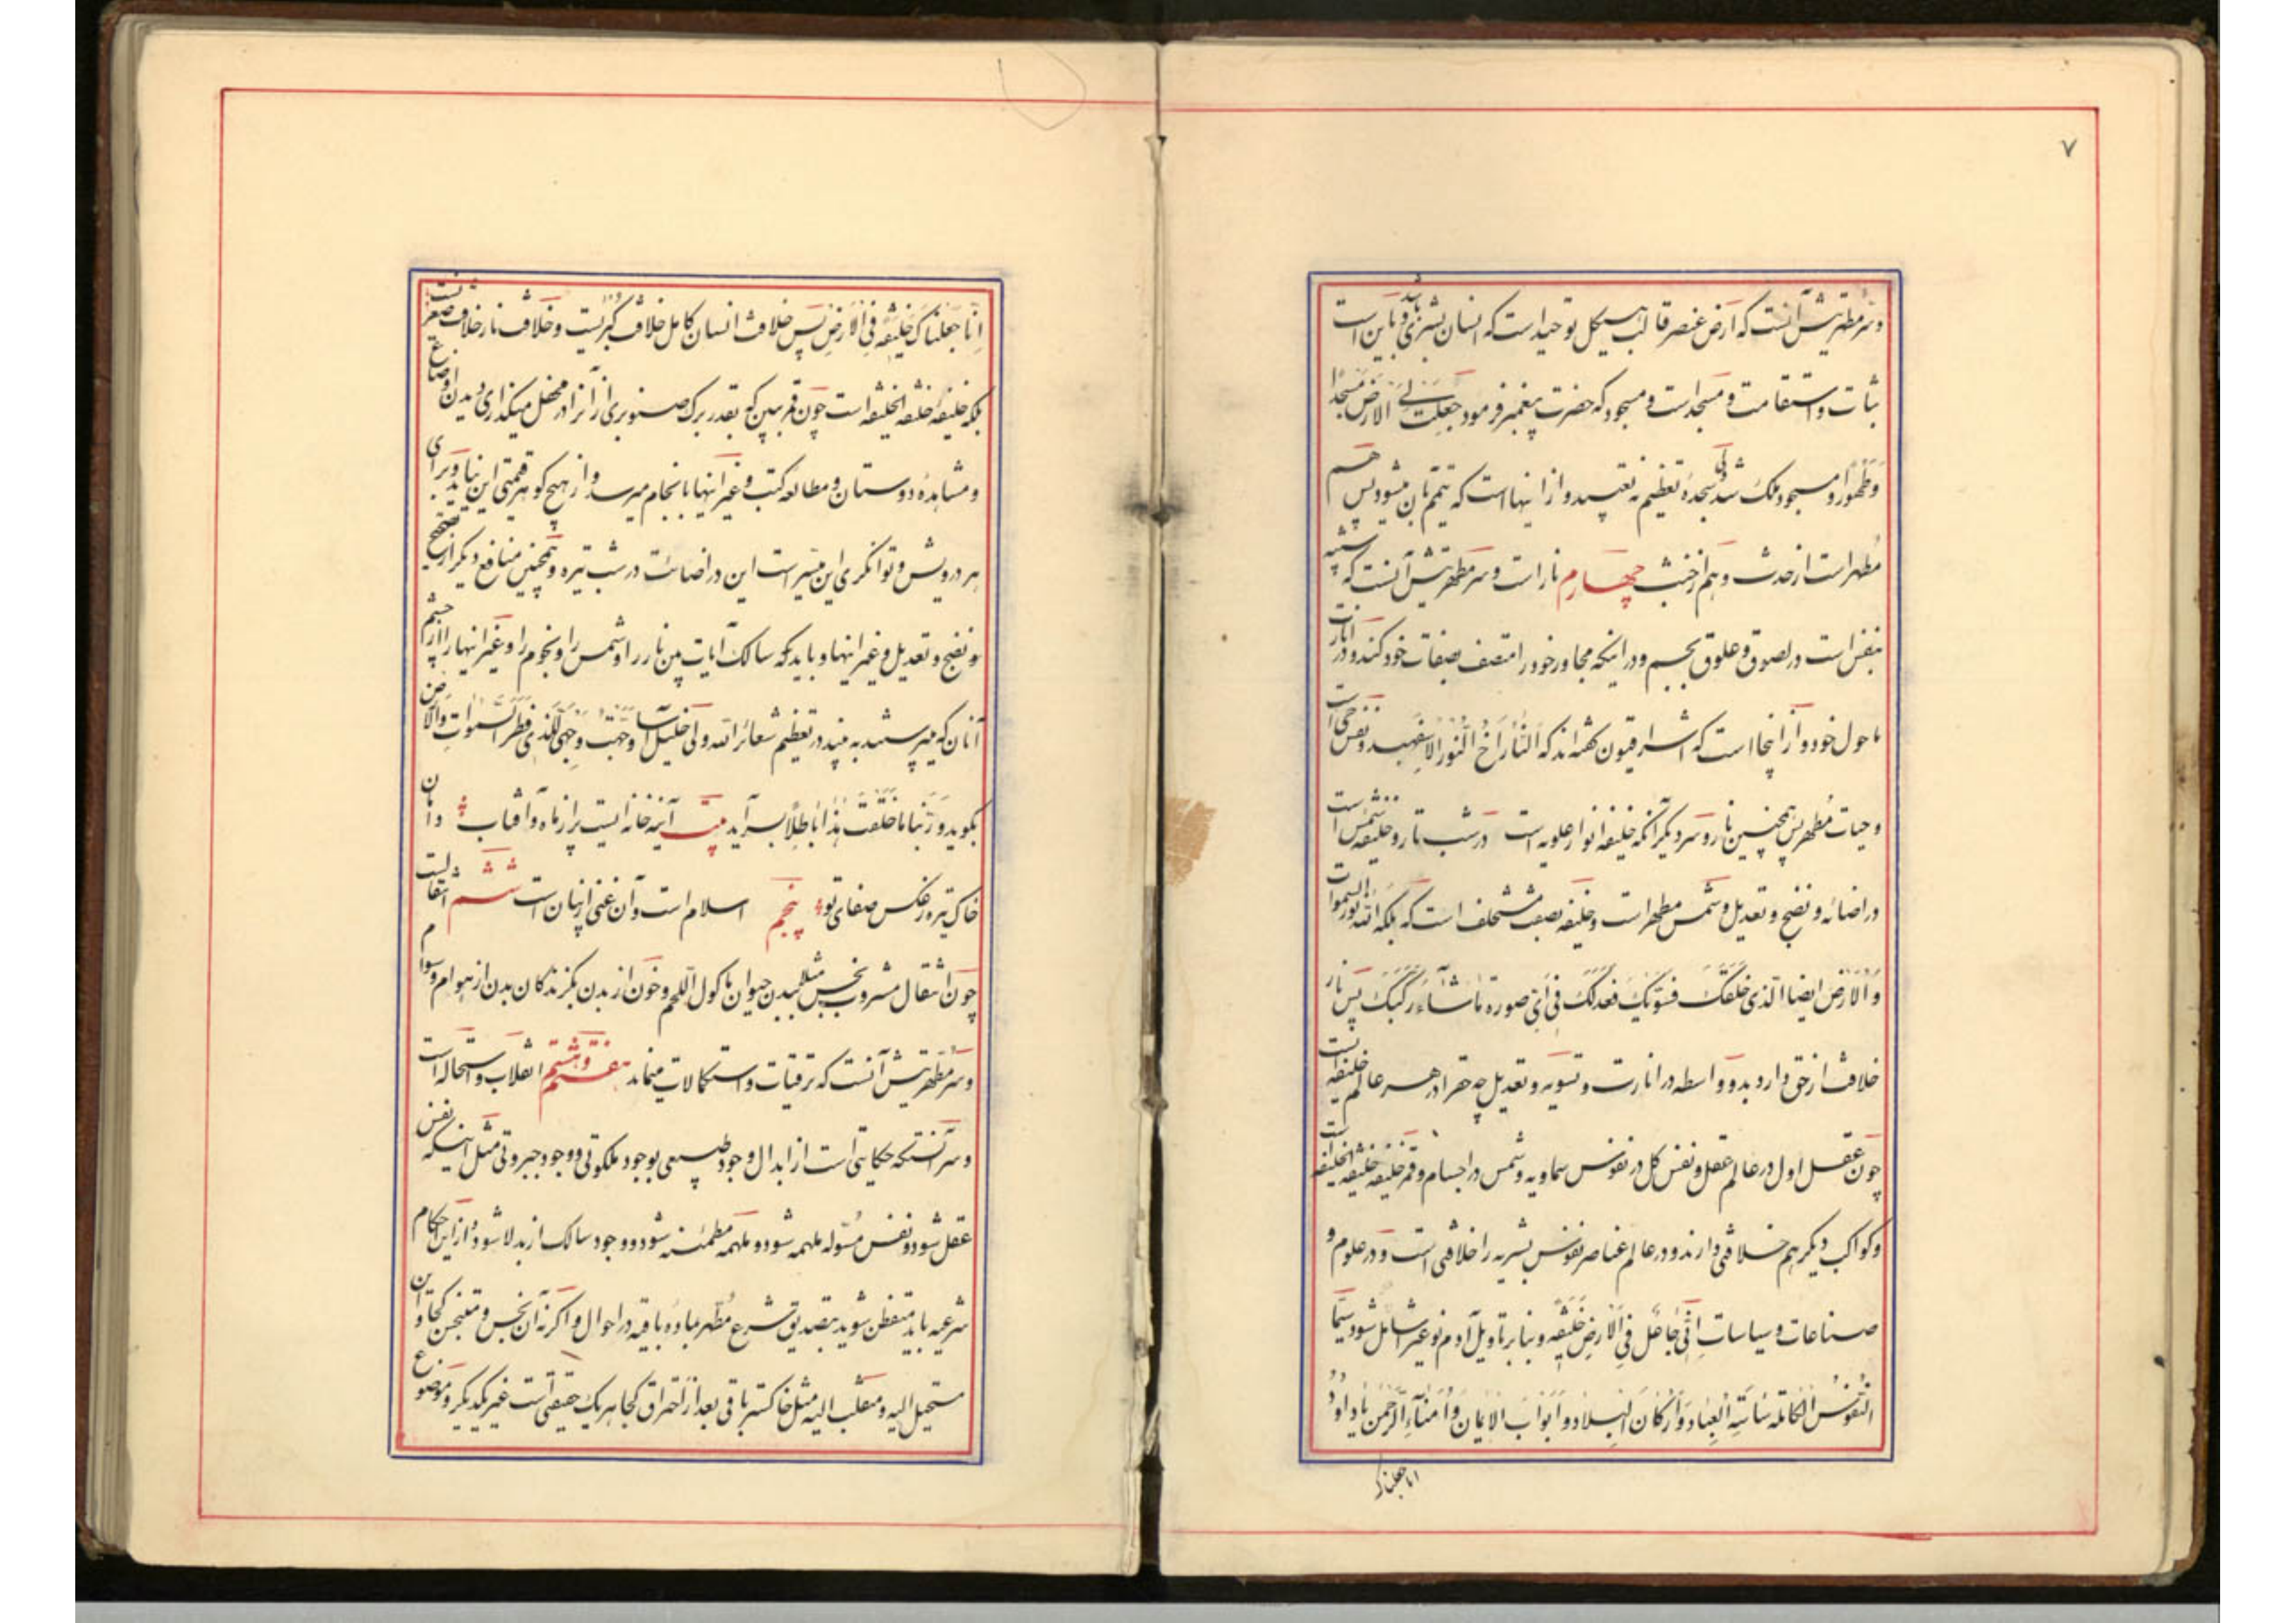 ۷
و سر مطهریتش آنست که ارض عنصر قالب هیکل توحید است که انسان بشری باشد و باین است
ثبات و استقامت و مسجد است و مسجود که حضرت پیغمبر فرمود جعلت لی الارض مسجدا
و طهورا و مسجود ملک شد ولی سجده تعظیم نه تعبید و از اینها است که تیمم بآن میشود پس هم
مطهر است از حدث و هم از خبث چهارم نار است و سر مطهریتش آنست که شبیه
بنفس است در لصوق و علوق بجسم و در اینکه مجاور خود را متصف بصفات خود کند و در انارت
ما حول خود و از اینجا است که اشراقیون گفته‌اند که النار اخ النور الاسفهبد و نفس حی است
و حیات مطهر پس همچنین نار و سر دیگر آنکه خلیفه انوار علویه است در شب تار و خلیفه شمس است
در اضائه و نضج و تعدیل و شمس مطهر است و خلیفه بصفت مستخلف است که بلکه الله نور السموات
و الارض ایضا الذی خلقک فسویک فعدلک فی ای صورة ما شاء رکبک پس نار
خلافت از حق دارد بدو واسطه در انارت و تسویه و تعدیل چه حقرا در هر عالم خلیفه ایست
چون عقل اول در عالم عقل و نفس کل در نفوس سماویه و شمس در اجسام و قمر خلیفه خلیفه الخلیفه است
و کواکب دیگر هم خلافتی دارند و در عالم عناصر نفوس بشریه را خلافتی است و در علوم و
صناعات و سیاسات انی جاعل فی الارض خلیفه و بنابر تاویل آدم نوعی شامل شود سیما
النفوس الکاملة ساسة العباد و ارکان البلاد و ابواب الایمان و امناء الرحمن یا داود
انا جعلناک
انا جعلناک خلیفة فی الارض پس خلافت انسان کامل خلافت کبریست و خلافت نار خلافت صغریست
بلکه خلیفه خلیفة الخلیفه است چون قمر ببین که بقدر برک صنوبری از آنرا در محفل میگذاری دیدن اوضاع
و مشاهده دوستان و مطالعه کتب و غیر اینها بانجام میرسد و از هیچ کوهر قیمتی این نیاید و برای
هر درویش و توانگری این میسر است این در اضائت در شب تیره و همچنین منافع دیگر از تصحیح
و نضج و تعدیل و غیر اینها و باید که سالک آیات بین نار را و شمس را و نجوم را و غیر اینها را از چشم
آنان که میپرستند به بیند در تعظیم شعائر الله ولی خلیل آسا وجهت وجهی للذی فطر السموات و الارض
بگوید و ربنا ما خلقت هذا باطلا بسراید بیت آینه خانه ایست پر از ماه و آفتاب دامان
خاک تیره ز عکس صفای تو پنجم اسلام است و آن غنی از بیان است ششم انتقالست
چون انتقال مشروب نجس مثلا ببدن حیوان ماکول اللحم و خون از بدن بگزندگان بدن از هوام و سوام
و سر مطهریتش آنست که ترقیات و استکمالات مینماید هفتم و هشتم انقلاب و استحاله است
و سر آنستکه حکایتی است از ابدال وجود طبیعی بوجود ملکوتی و وجود جبروتی مثل اینکه نفس
عقل شود و نفس مسوله ملهمه شود و ملهمه مطمئنه شود و وجود سالک از بدلا شود و از این احکام
شرعیه باید متفطن شوید بتصدیق شرع مطهر ماده باقیه در احوال و اگر نه آن نجس و متنجس کجا و این
مستحیل الیه و منقلب الیه مثل خاکستر باقی بعد از احتراق کجا هر یک حقیقتی است غیر یکدیگر و موضوع